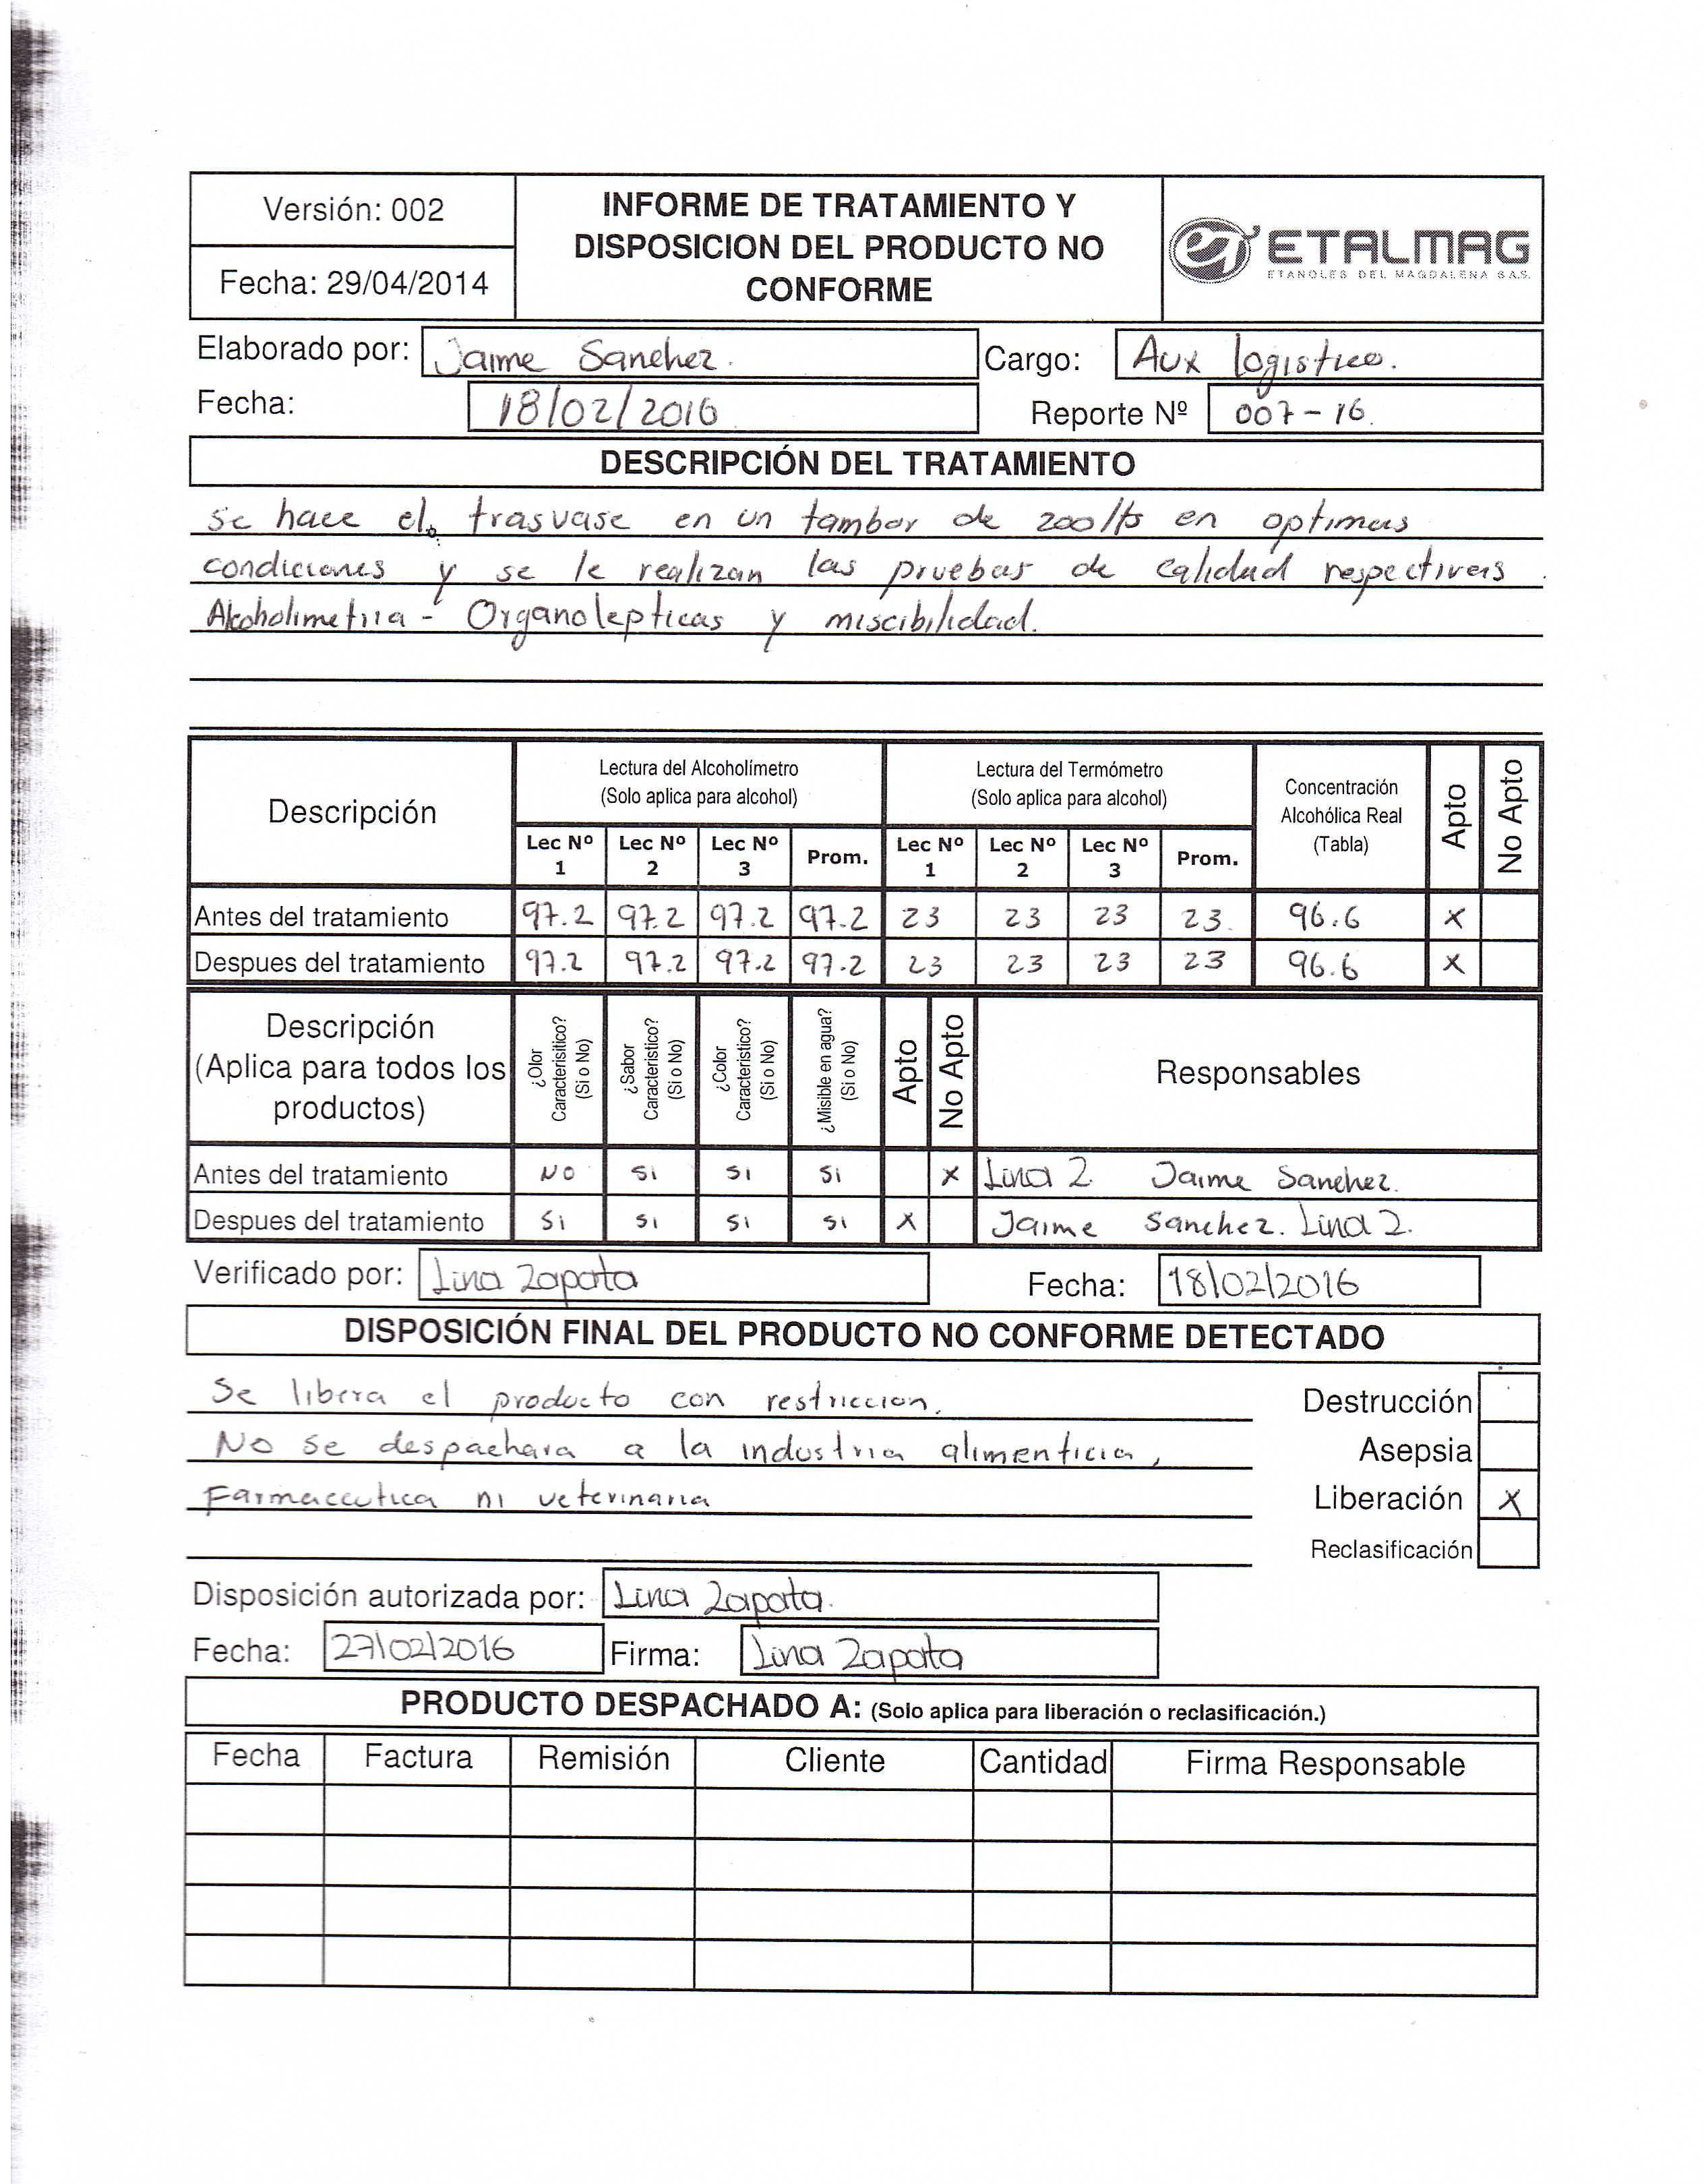 Versión: 002
Fecha: 29/04/2014
INFORME DE TRATAMIENTO Y
DISPOSICION DEL PRODUCTO NO
CONFORME
ETALMAG
ETANOLES DEL MAGDALENA S.A.S.
Elaborado por: Jaime Sanchez. Cargo: Aux logistico.
Fecha: 18/02/2016 Reporte Nº 007-16.
DESCRIPCIÓN DEL TRATAMIENTO
se hace el trasvase en un tambor de 200 lts en optimas
condiciones y se le realizan las pruebas de calidad respectivas.
Alcoholimetria - Organolepticas y miscibilidad.
Descripción
Lectura del Alcoholímetro
(Solo aplica para alcohol)
Lectura del Termómetro
(Solo aplica para alcohol)
Concentración
Alcohólica Real
(Tabla)
Apto
No Apto
Lec Nº 1 Lec Nº 2 Lec Nº 3 Prom. Lec Nº 1 Lec Nº 2 Lec Nº 3 Prom.
Antes del tratamiento 97.2 97.2 97.2 97.2 23 23 23 23. 96.6 X
Despues del tratamiento 97.2 97.2 97.2 97.2 23 23 23 23 96.6 X
Descripción
(Aplica para todos los
productos)
¿Olor
Caracterisitico?
(Si o No)
¿Sabor
Caracteristico?
(Si o No)
¿Color
Caracteristico?
(Si o No)
¿Misible en agua?
(Si o No)
Apto
No Apto
Responsables
Antes del tratamiento NO Si Si Si X Lina Z Jaime Sanchez.
Despues del tratamiento Si Si Si Si X Jaime Sanchez. Lina Z.
Verificado por: Lina Zapata Fecha: 18/02/2016
DISPOSICIÓN FINAL DEL PRODUCTO NO CONFORME DETECTADO
Se libera el producto con restriccion.
No se despachara a la industria alimenticia,
Farmaceutica ni veterinaria
Destrucción
Asepsia
Liberación X
Reclasificación
Disposición autorizada por: Lina Zapata.
Fecha: 27/02/2016 Firma: Lina Zapata
PRODUCTO DESPACHADO A: (Solo aplica para liberación o reclasificación.)
Fecha Factura Remisión Cliente Cantidad Firma Responsable